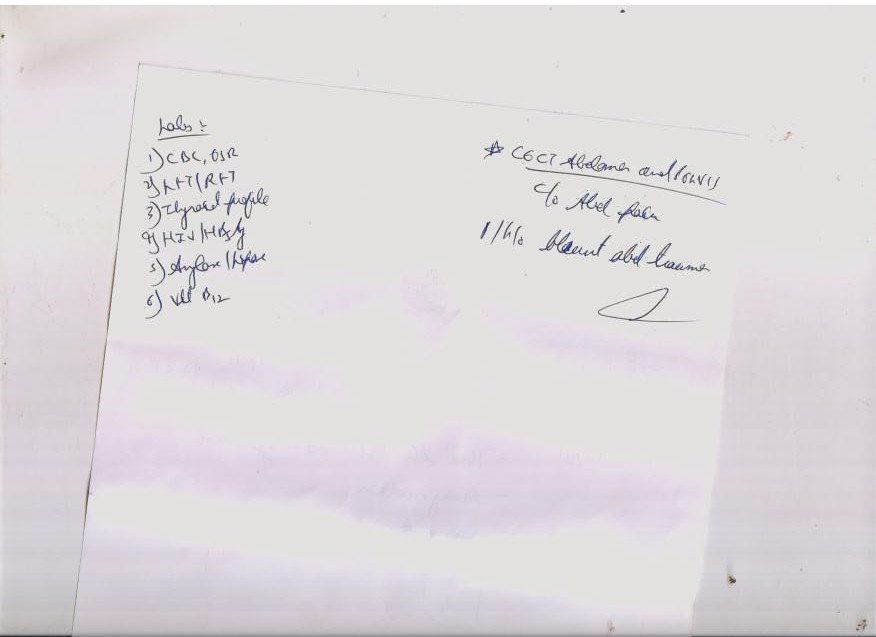 Labs :-
1) CBC, ESR
2) LFT/RFT
3) Thyroid profile
4) HIV/HBsAg
5) Amylase/Lipase
6) Vit B12
* CECT Abdomen and Pelvis
c/o Abd pain
H/o blaunt abd trauma